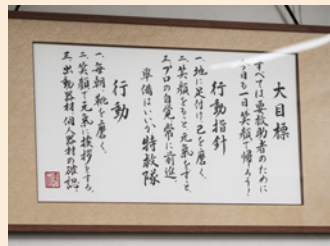 大目標
すべては要救助者のために
今日も一日笑顔で帰ろう!
行動指針
一、地に足付け己を磨く。
二、笑顔をもって元気をだす。
三、プロの自覚常に前進。
準備はいいか特救隊
行動
一、毎朝、靴を磨く。
二、笑顔で元気に挨拶をする。
三、出動器材個人器材の確認。